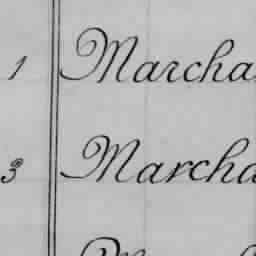 1 Marcha
3 Marcha